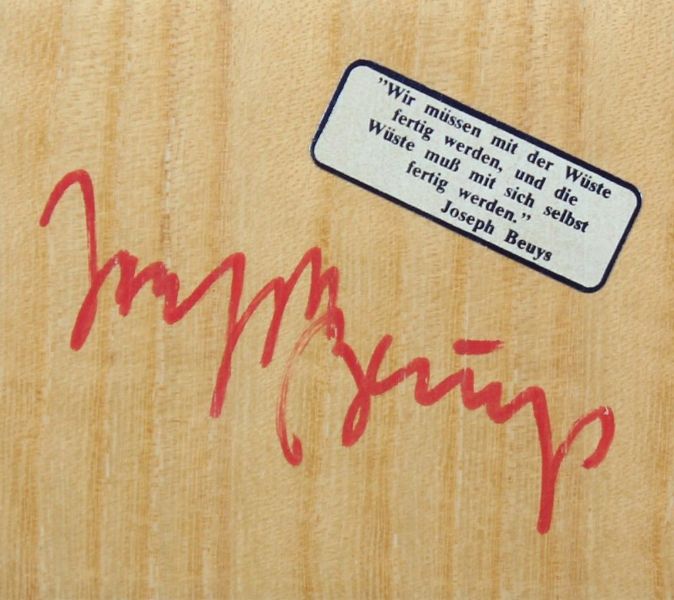 "Wir müssen mit der Wüste
fertig werden, und die
Wüste muß mit sich selbst
fertig werden."
Joseph Beuys
Joseph Beuys